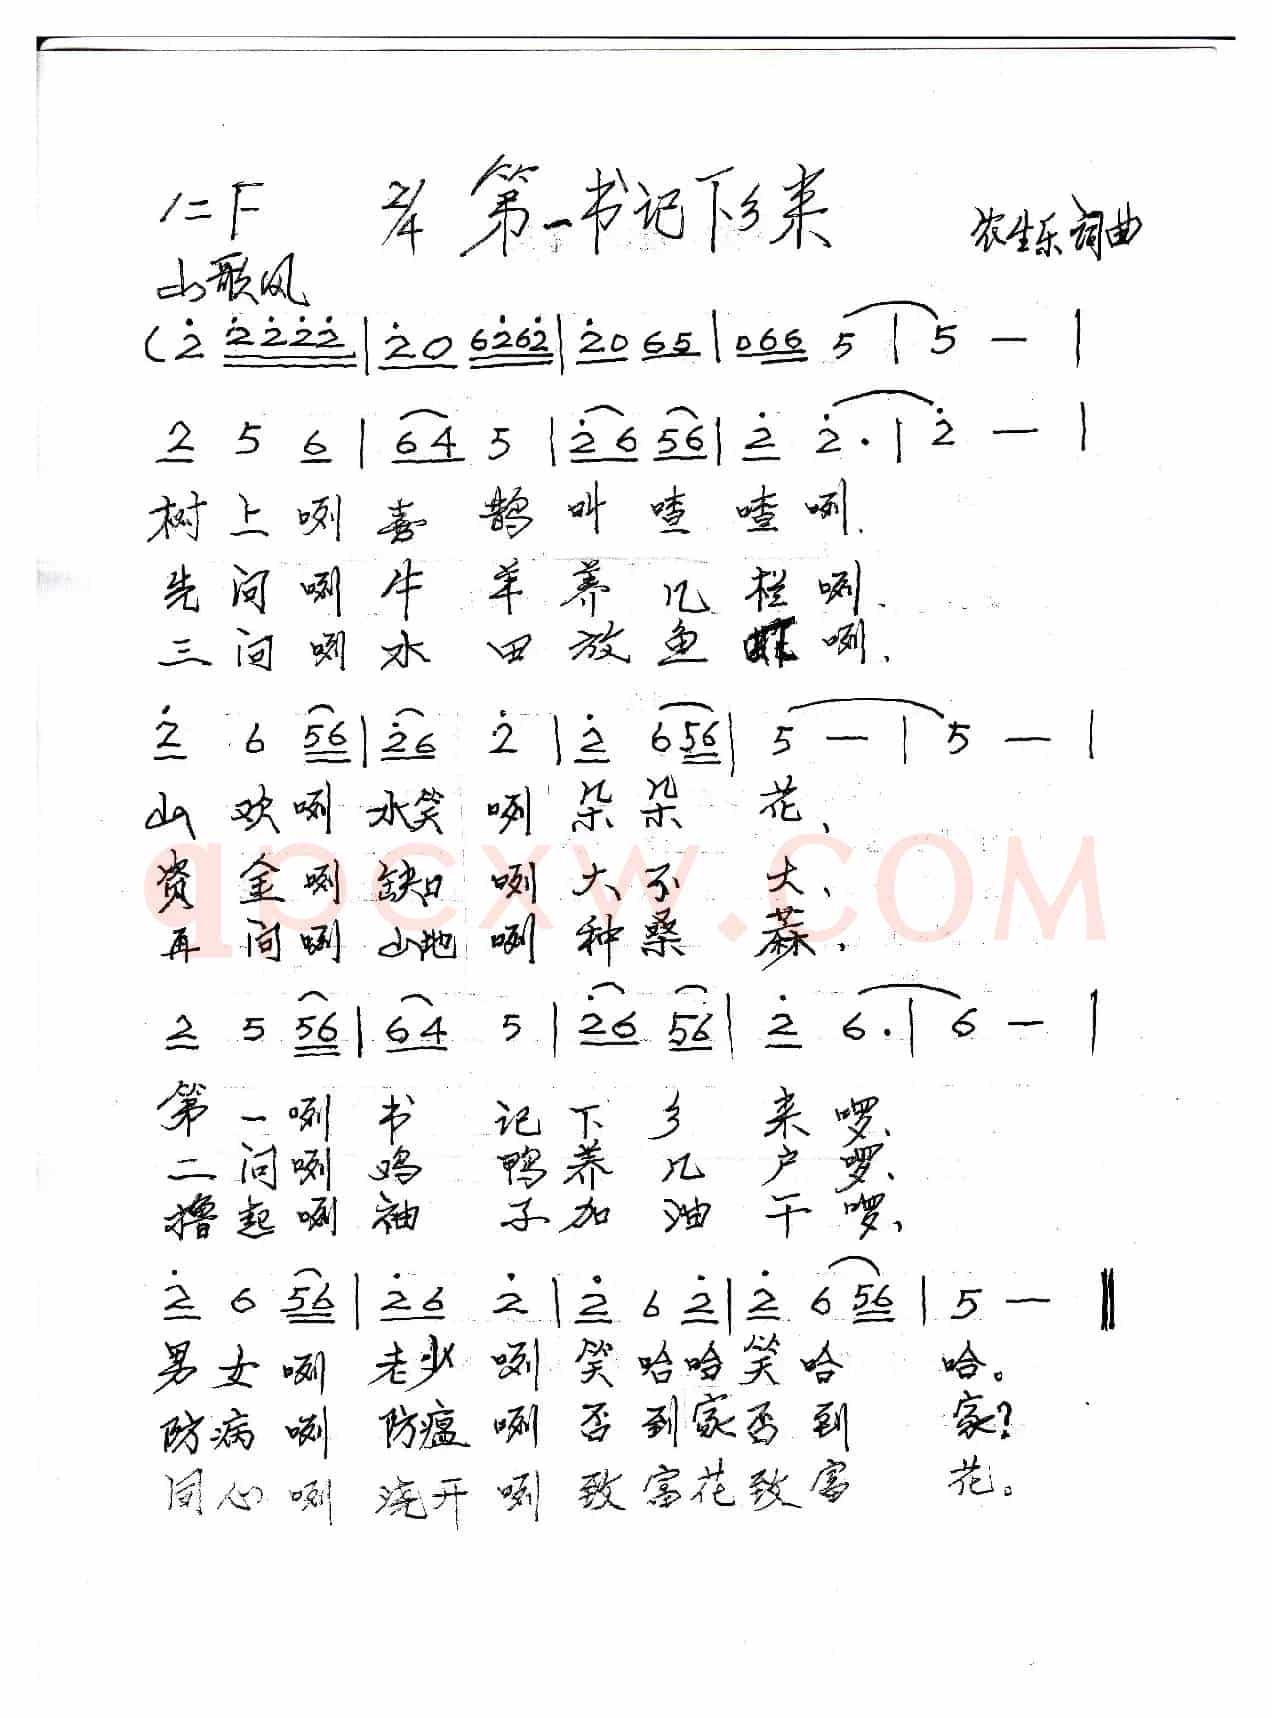 1=F 2/4 第一书记下乡来 农生乐词曲
山歌风
(2 2222 | 20 6262 | 20 65 | 066 5 | 5 — |
2 5 6 | 64 5 | 26 56 | 2 2· | 2 — |
树上咧喜鹊叫喳喳咧.
先问咧牛羊养几栏咧、
三问咧水田放鱼咧、
2 6 56 | 26 2 | 2 656 | 5 — | 5 — |
山欢咧水笑咧朵朵花、
资金咧缺口咧大不大、
再问咧山地咧种桑蔴、
qpcxw.COM
2 5 56 | 64 5 | 26 56 | 2 6· | 6 — |
第一咧书记下乡来啰、
二问咧鸡鸭养几户啰、
撸起咧袖子加油干啰、
2 6 56 | 26 2 | 2 6 2 | 2 656 | 5 — ‖
男女咧老少咧笑哈哈笑哈哈。
防病咧防瘟咧否到家否到家?
同心咧浇开咧致富花致富花。